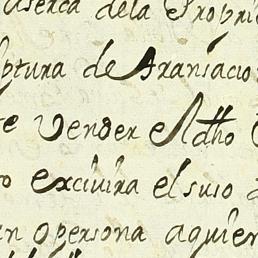 aserca dela Propri
ptura de Transacio
e vender el dho
o excivira el suso
n opersona aquien